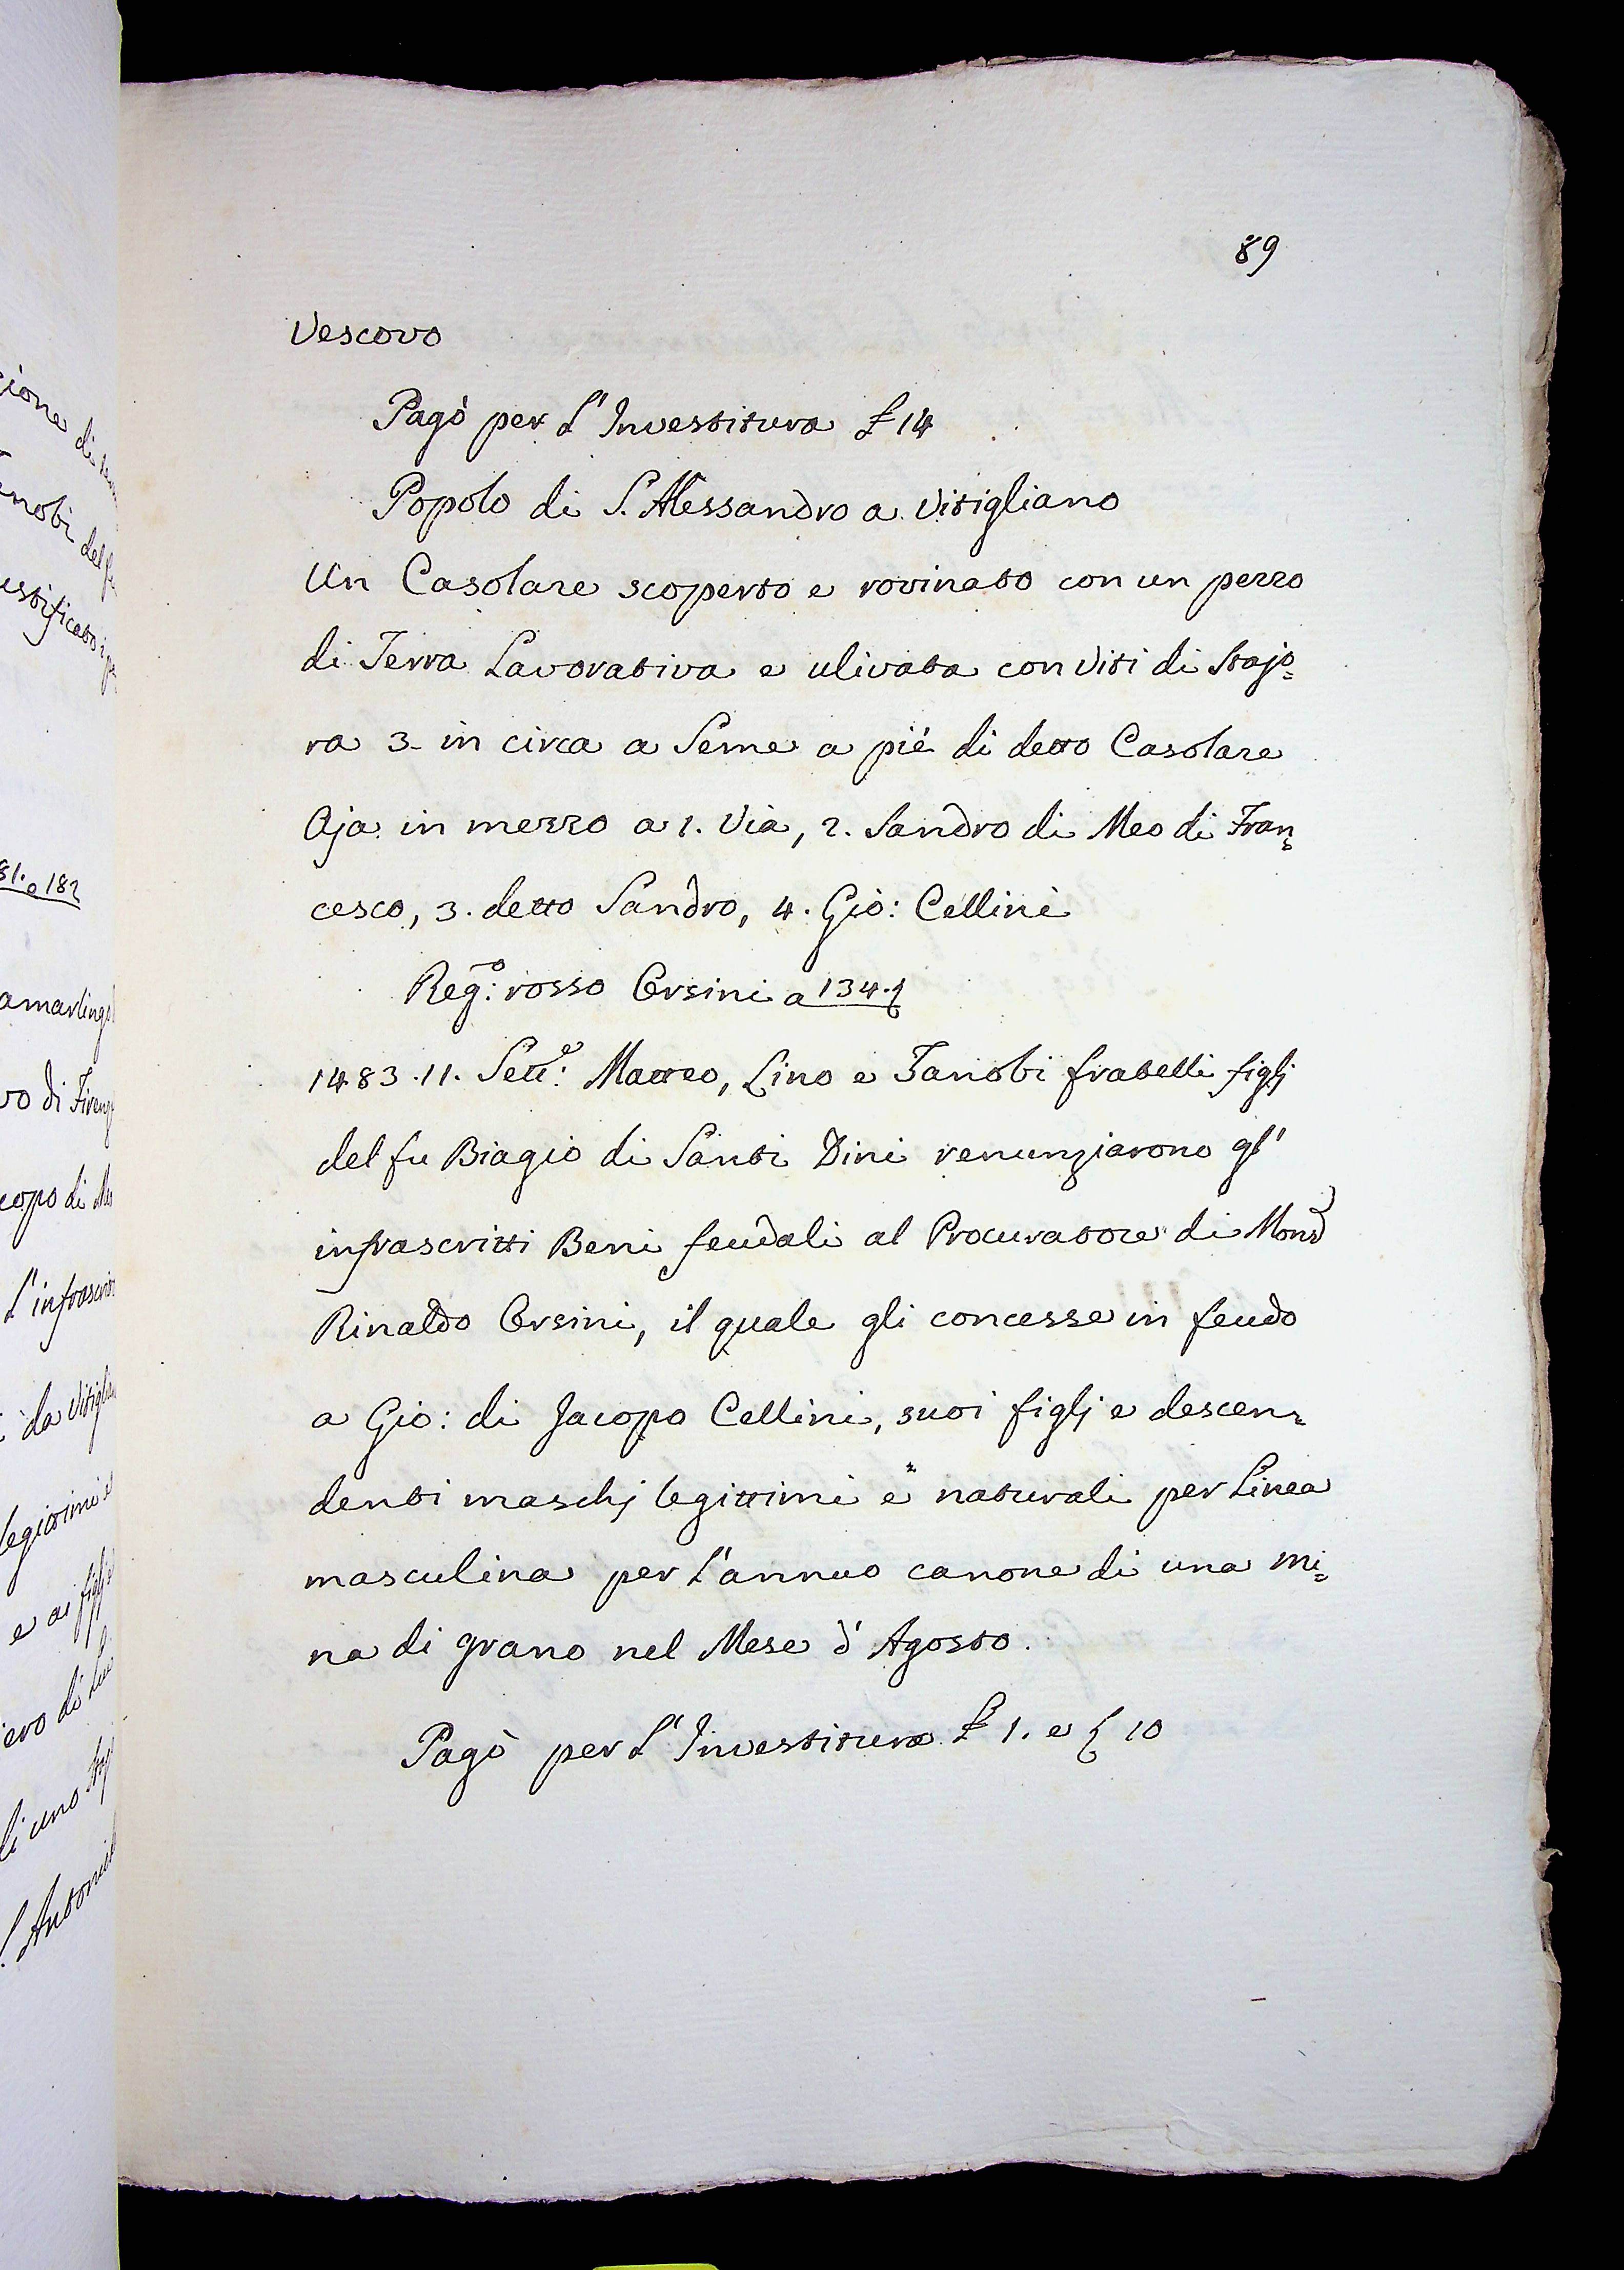 89
Vescovo
Pagò per L'Investitura £ 14
Popolo di S. Alessandro a Vitigliano
Un Casolare scoperto e rovinato con un pezzo
di Terra Lavorativa e ulivata con Viti di Stajo=
ra 3. in circa a Seme a piè di detto Casolare
Aja in mezzo a 1. Via, 2. Sandro di Meo di Fran=
cesco, 3. detto Sandro, 4. Gio: Cellini
Reg:o rosso Orsini a 134.
1483. 11. Sett:e Matteo, Lino e Zanobi fratelli figlj
del fu Biagio di Santi Dini renunziarono gl'
infrascritti Beni feudali al Procuratore di Mons
Rinaldo Orsini, il quale gli concesse in feudo
a Gio: di Jacopo Cellini, suoi figlj e descen=
denti maschj legittimi e naturali per Linea
masculina per L'annuo canone di una mi=
na di grano nel Mese d'Agosto.
Pagò per L'Investitura £ 1. e 10
81. e 182
di
da
e ai
copo di
vo di
L'